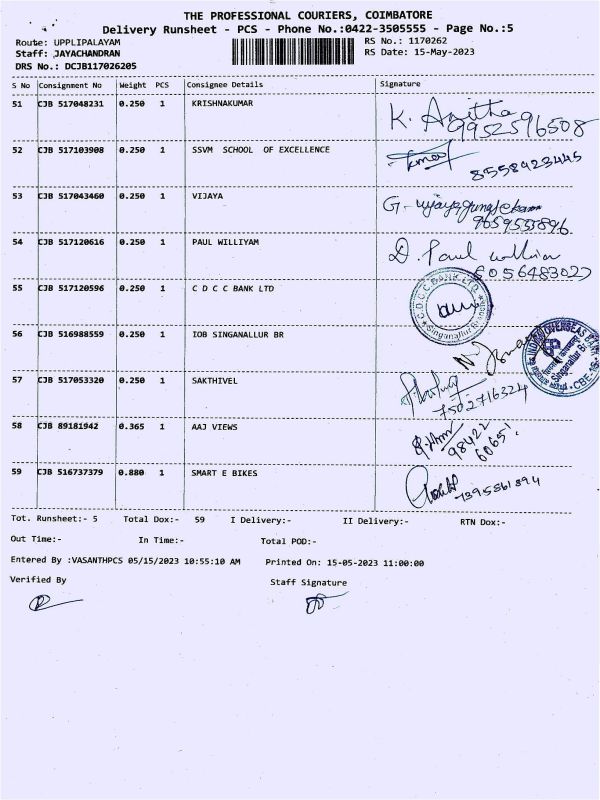 THE PROFESSIONAL COURIERS, COIMBATORE
Delivery Runsheet - PCS - Phone No.:0422-3505555 - Page No.:5
Route: UPPLIPALAYAM
RS No.: 1170262
Staff: JAYACHANDRAN
RS Date: 15-May-2023
DRS No.: DCJB117026205
S No Consignment No Weight PCS Consignee Details Signature
51 CJB 517048231 0.250 1 KRISHNAKUMAR K. Anitha
9952596508
52 CJB 517103908 0.250 1 SSVM SCHOOL OF EXCELLENCE
8558923445
53 CJB 517043460 0.250 1 VIJAYA G-
9659555896
54 CJB 517120616 0.250 1 PAUL WILLIYAM D. Paul william
6056483027
55 CJB 517120596 0.250 1 C D C C BANK LTD
C.D.C.C BANK LTD.
Singanallur Branch
56 CJB 516988559 0.250 1 IOB SINGANALLUR BR
INDIAN OVERSEAS BANK
Singanallur Br
CBE-15
57 CJB 517053320 0.250 1 SAKTHIVEL
7502716324
58 CJB 89181942 0.365 1 AAJ VIEWS
98422
60651
59 CJB 516737379 0.880 1 SMART E BIKES
7395561894
Tot. Runsheet:- 5 Total Dox:- 59 I Delivery:- II Delivery:- RTN Dox:-
Out Time:- In Time:- Total POD:-
Entered By :VASANTHPCS 05/15/2023 10:55:10 AM Printed On: 15-05-2023 11:00:00
Verified By Staff Signature